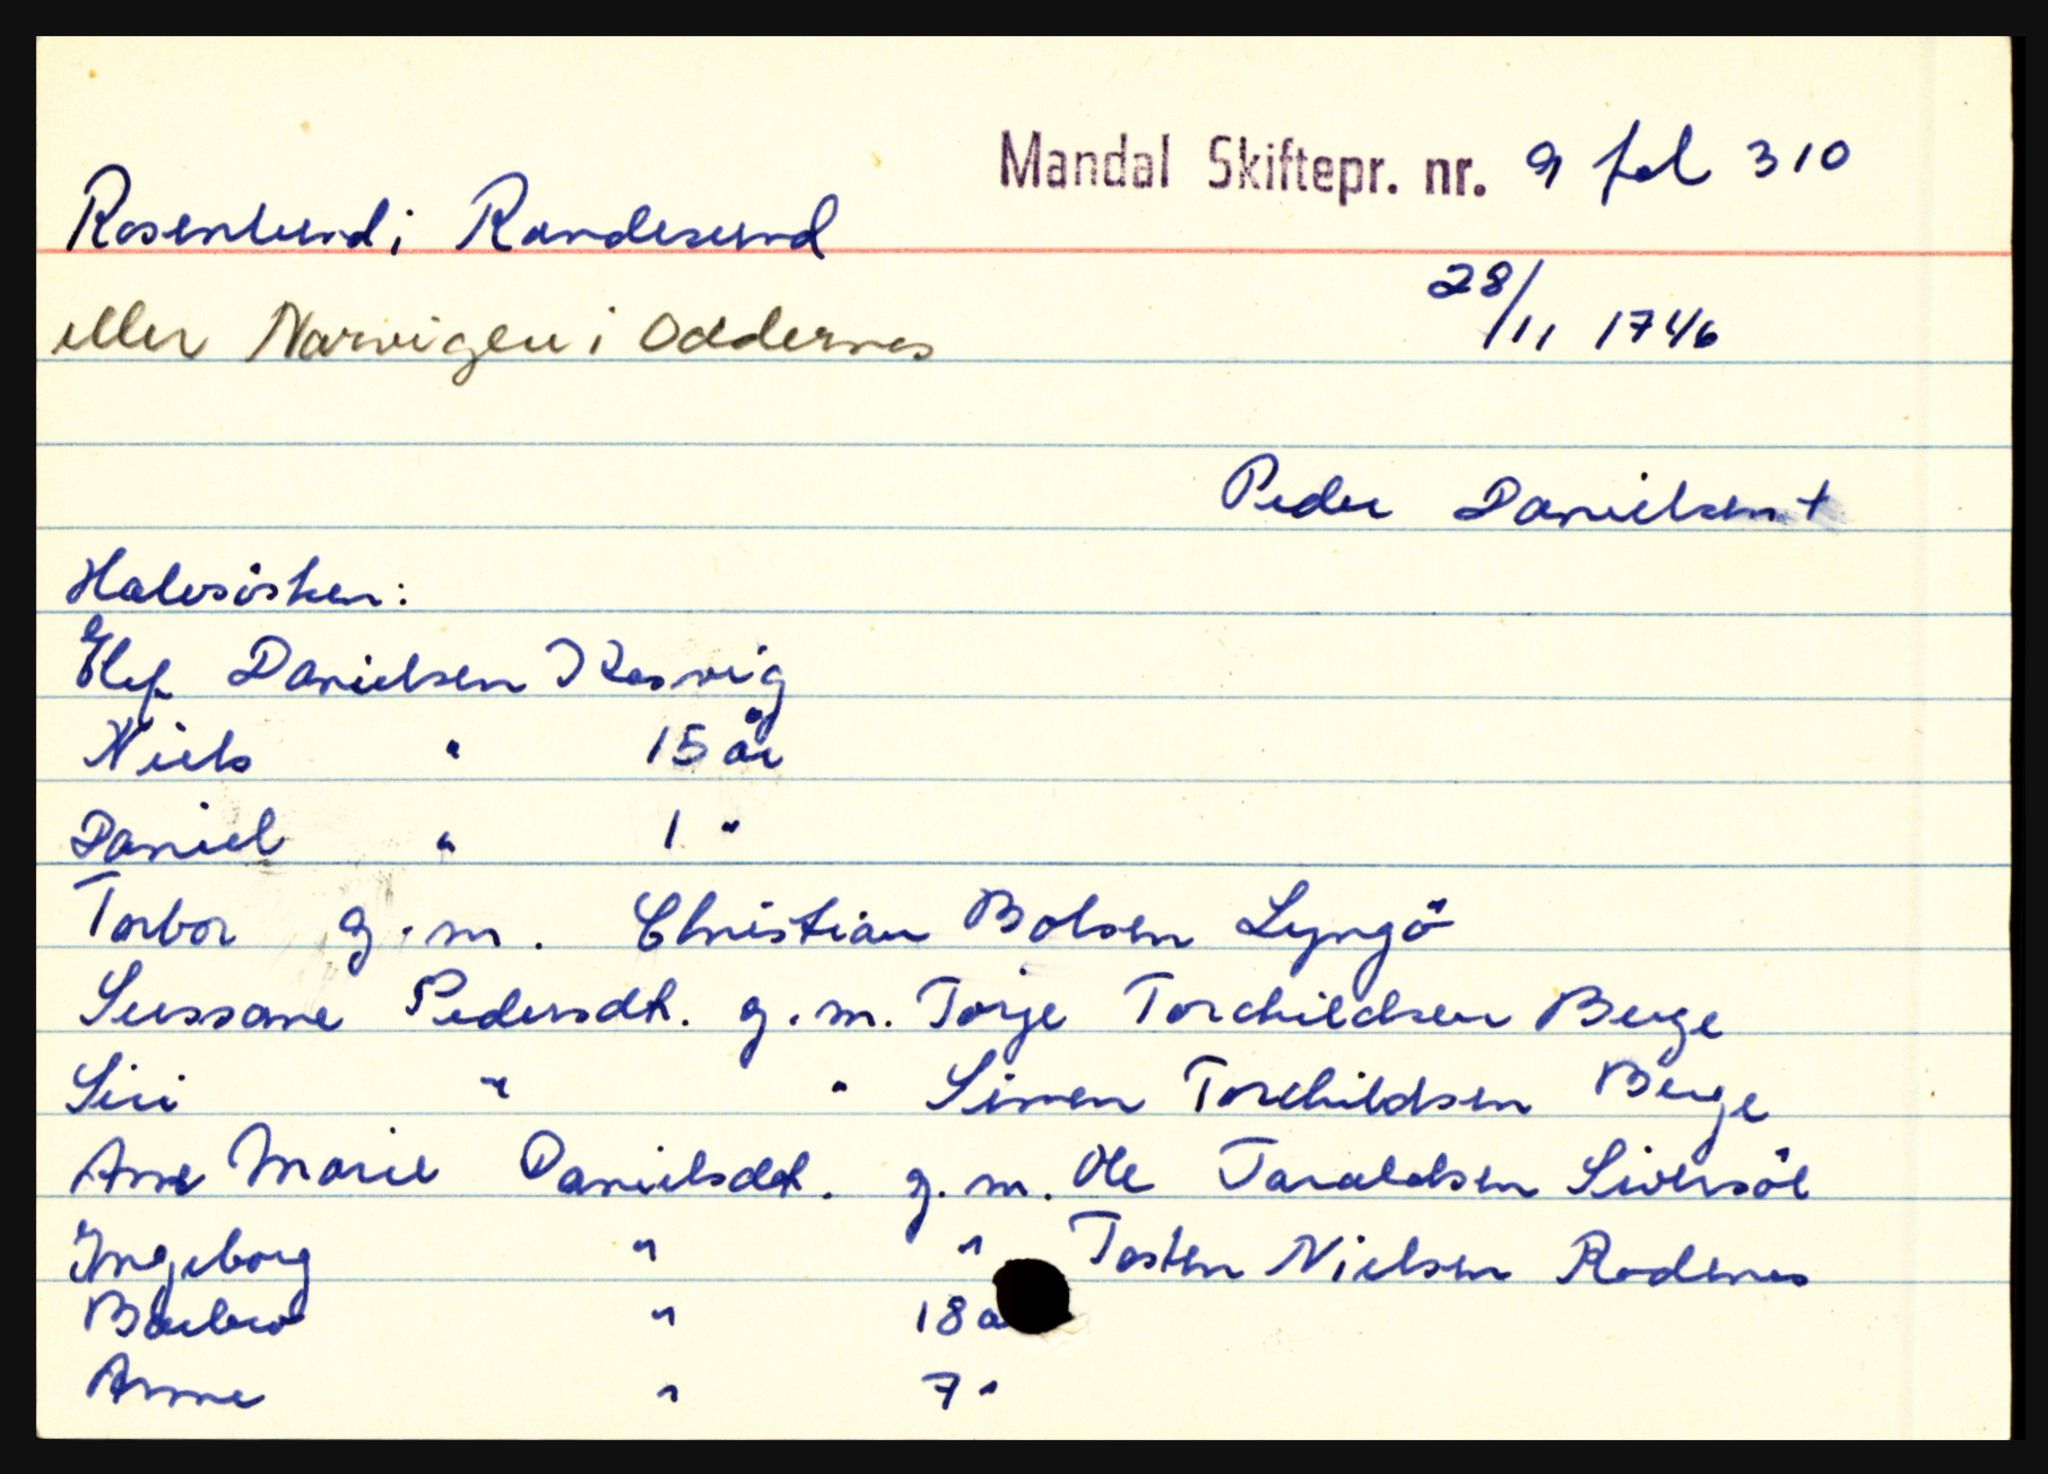 Mandal Skiftepr. nr. 9 fol 310
Rosenlund i Randesund
28/11 1746
eller Narvigen i Oddernes
Peder Danielsen +
Halvsösken:
Elef Danielsen Kosvig
Niels " 15 år
Daniel " 1 "
Torbor g.m. Christian Bolsen Lyngö
Sussane Pedersdt. g.m. Torje Torchildsen Berge
Siri " " Simen Torchildsen Berge
Ane Marie Danielsdt. g.m. Ole Taraldsen Siversöl
Ingeborg " " Tosten Nielsen Rodenes
Barbro " 18 å
Anne " 7 "